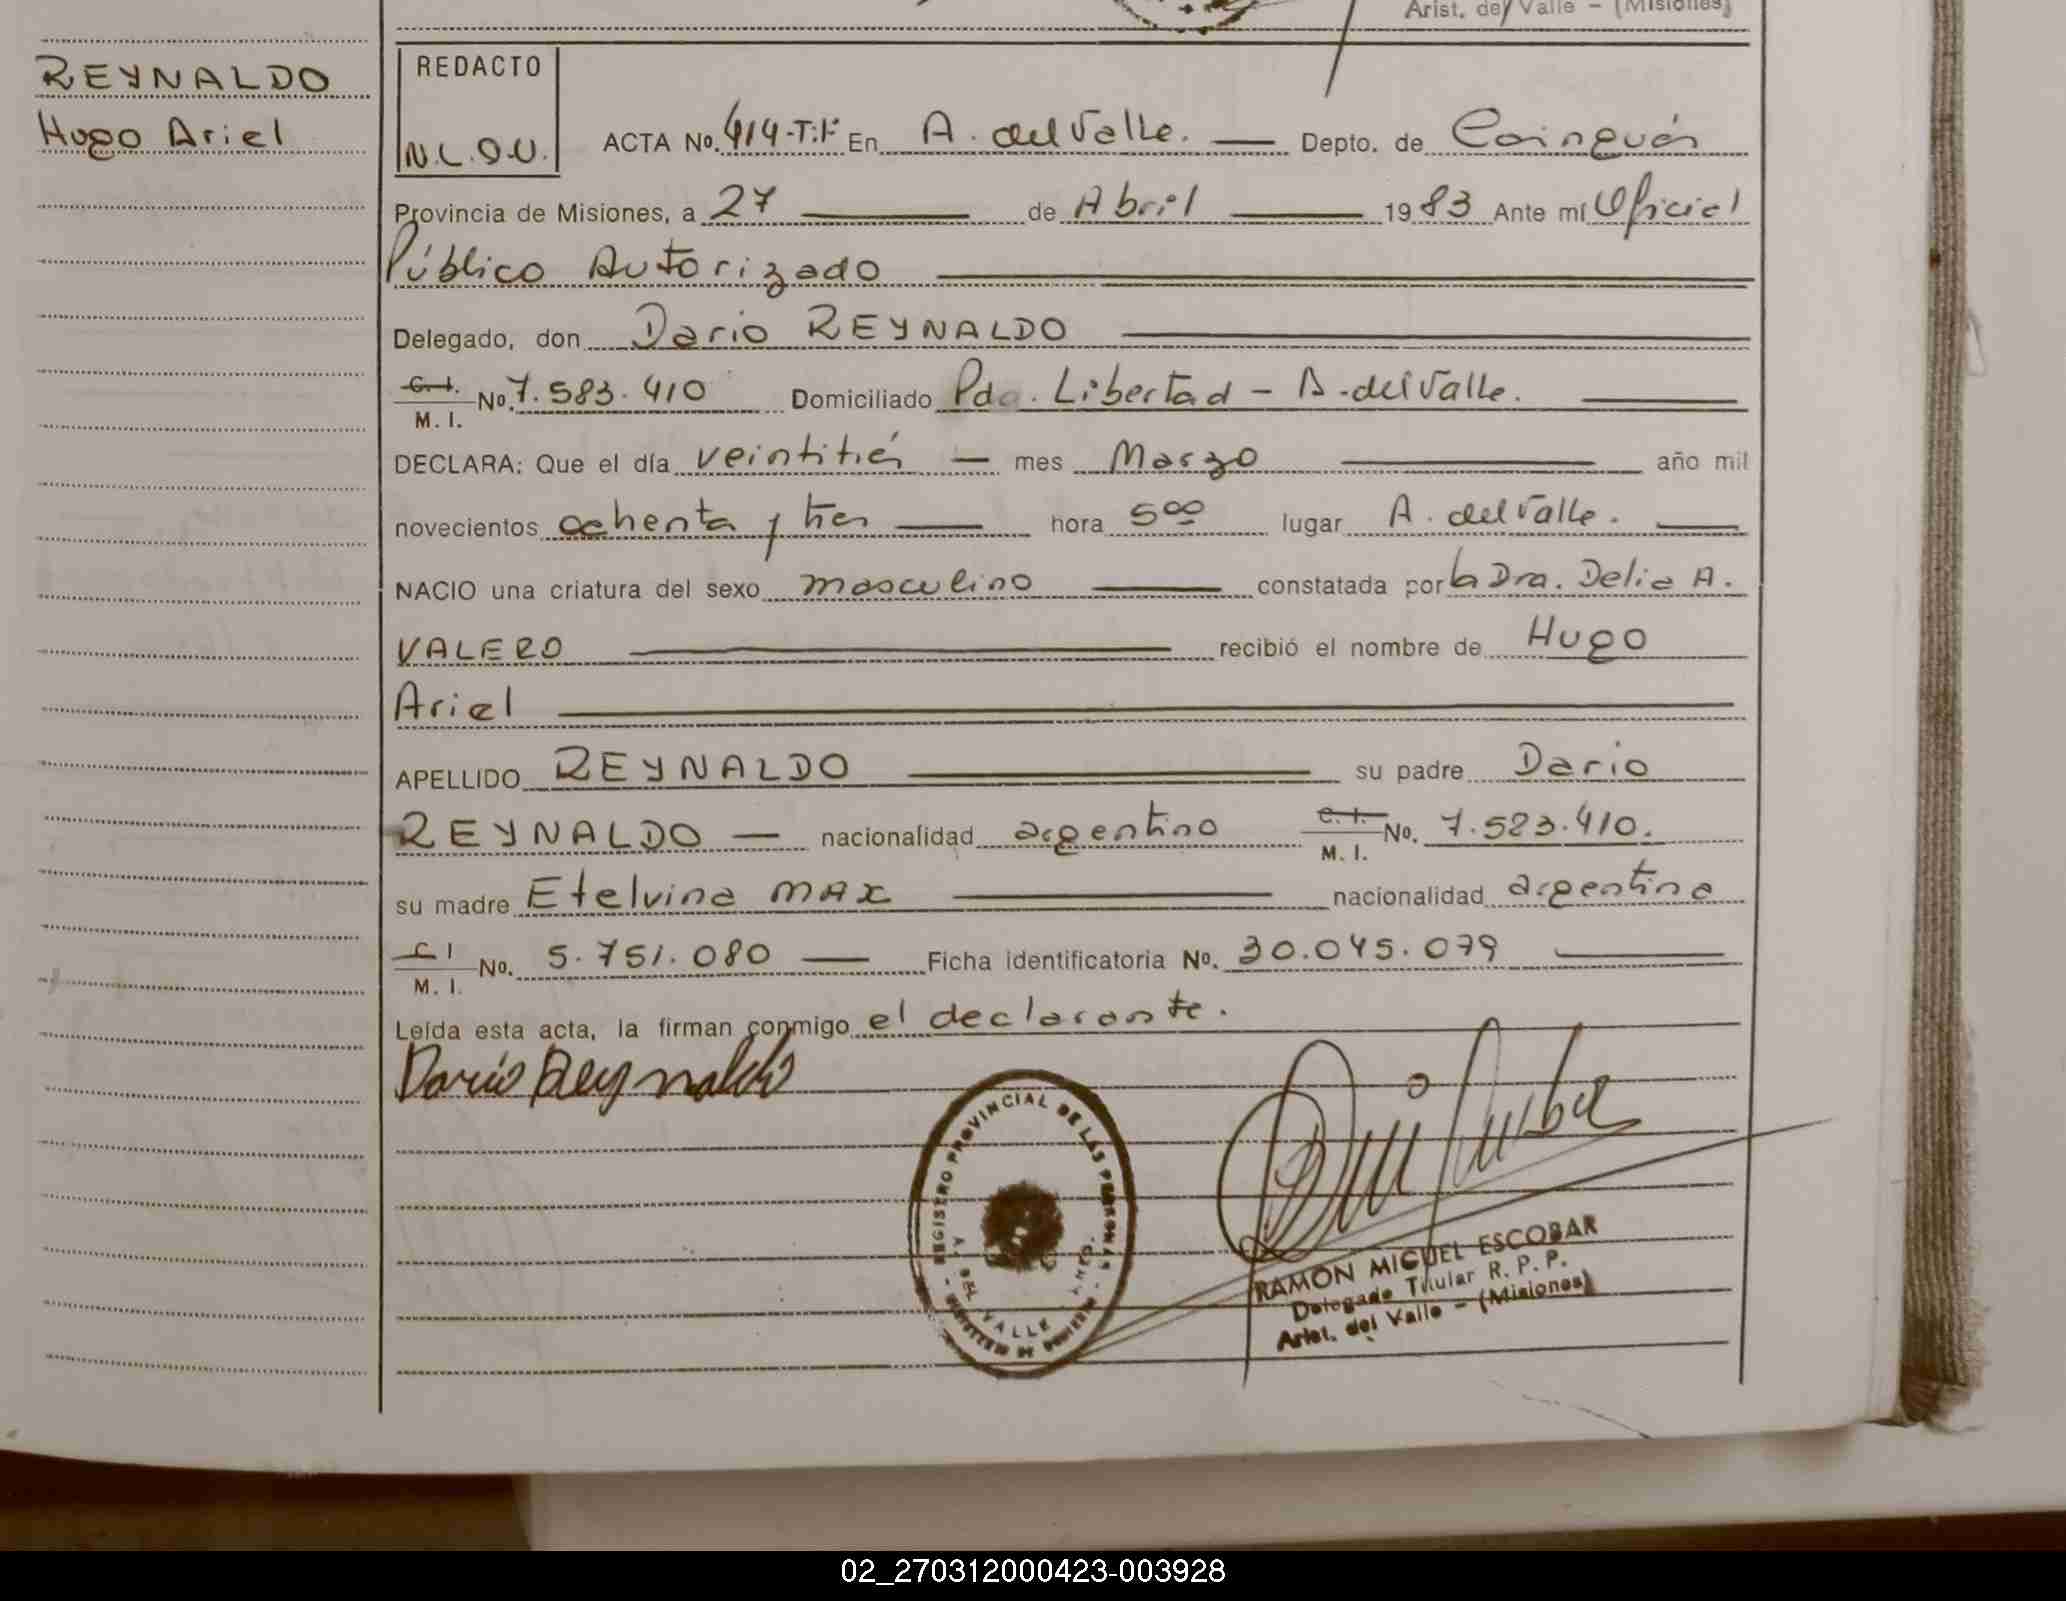 Arist. del Valle - (Misiones)
REYNALDO
Hugo Ariel
REDACTO
N.L.O.U.
ACTA No. 414-T:I: En A. del Valle. Depto. de Cainguás
Provincia de Misiones, a 27 de Abril 1983 Ante mí Oficial
Público Autorizado
Delegado, don Dario REYNALDO
C. I.
M. I. No. 7.583.410 Domiciliado Pda. Libertad - A. del Valle.
DECLARA: Que el día veintitrés mes Marzo año mil
novecientos ochenta y tres hora 500 lugar A. del Valle.
NACIO una criatura del sexo masculino constatada por la Dra. Delia A.
VALERO recibió el nombre de Hugo
Ariel
APELLIDO REYNALDO su padre Dario
REYNALDO nacionalidad argentino C. I. M. I. No. 7.523.410.
su madre Etelvina MAX nacionalidad argentina
C I
M. I. No. 5.751.080 Ficha identificatoria No. 30.045.079
Leída esta acta, la firman conmigo el declarante.
Dario Reynaldo
REGISTRO PROVINCIAL DE LAS PERSONAS
A. DEL VALLE
RAMON MIGUEL ESCOBAR
Delegado Titular R. P. P.
Arist. del Valle - (Misiones)
02_270312000423-003928